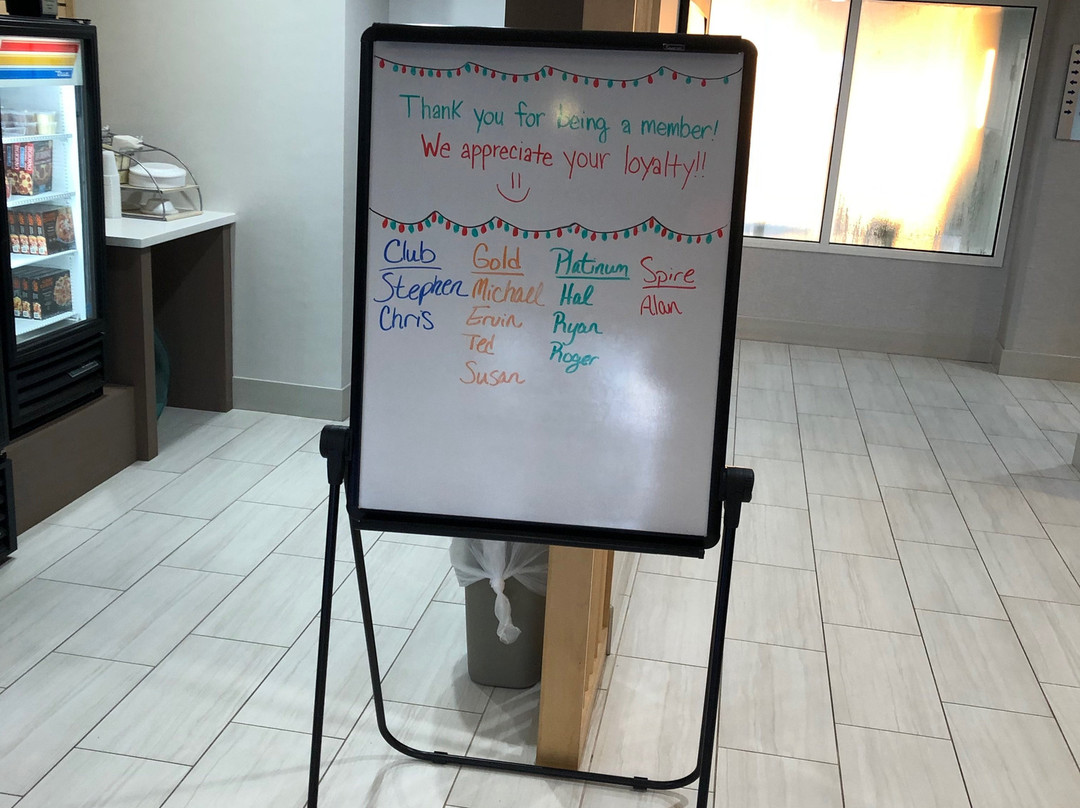 Thank you for being a member!
We appreciate your loyalty!!
Club Gold Platinum Spire
Stephen Michael Hal Alan
Chris Ervin Ryan
Ted Roger
Susan